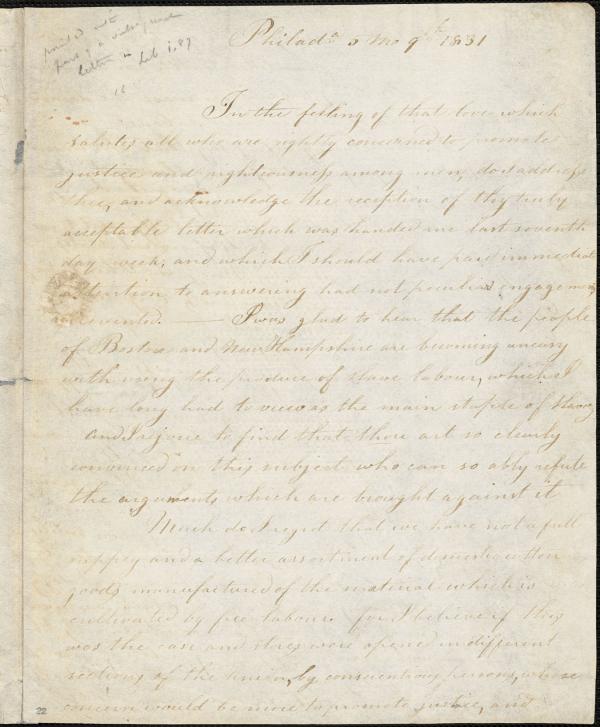 printed with
part of a subsequent
letter in Lib 1.87
Philad.a 5 mo 9th 1831
In the feeling of that love which
salutes all who are rightly concerned to promote
justice and righteousness among men, do I address
thee, and acknowledge the reception of thy truly
acceptable letter which was handed me last seventh
day week; and which I should have paid immediate
attention to answering had not peculiar engagements
prevented. — I was glad to hear that the people
of Boston and New Hampshire are becoming uneasy
with using the produce of slave labour, which I
have long had to view as the main staple of slavery
and I rejoice to find that thou art so clearly
convinced on this subject who can so ably refute
the arguments which are brought against it
Much do I regret that we have not a full
suppey and a better assortment of domestic cotton
goods manufactured of the material which is
cultivated by free labour. for I believe if this
was the case and stores were opened in different
sections of the union, by conscientious persons, whose
concern would be more to promote justice, and
22